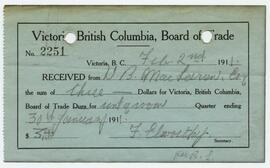 Victoria British Columbia, Board of Trade
No. 2251
Victoria, B.C. Feb 2nd 191
RECEIVED from D B
the sum of three Dollars for Victoria, British Columbia,
Board of Trade Dues for Quarter ending
30th January 191
$
Secretary.